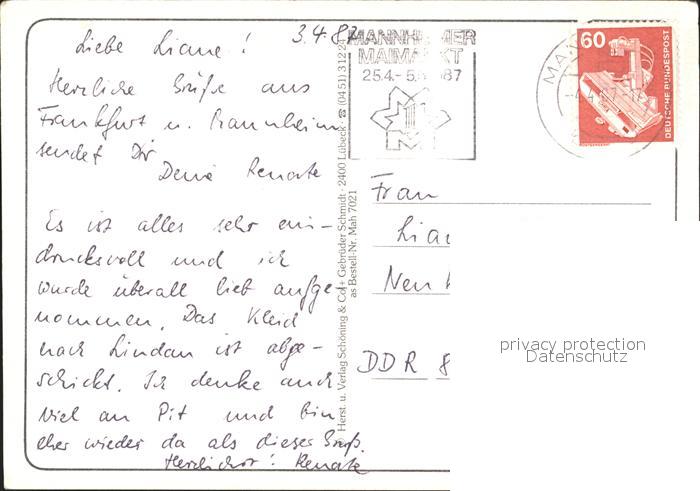 3.4.87
Liebe Liane!
Herzliche Grüße aus
Frankfurt u. Mannheim
sendet Dir
Deine Renate
Es ist alles sehr ein-
drucksvoll und ich
wurde überall lieb aufge-
nommen. Das Kleid
nach Lindau ist abge-
schickt. Ich denke auch
viel an Pit und bin
eher wieder da als dieser Gruß.
Herzlichst! Renate
Herst. u. Verlag Schöning & Co + Gebrüder Schmidt · 2400 Lübeck · ☎ (0451) 31224
as Bestell-Nr. Mah 7021
MANNHEIMER
MAIMARKT
25.4.-5.5.1987
60
DEUTSCHE BUNDESPOST
Frau
DDR 8
privacy protection
Datenschutz